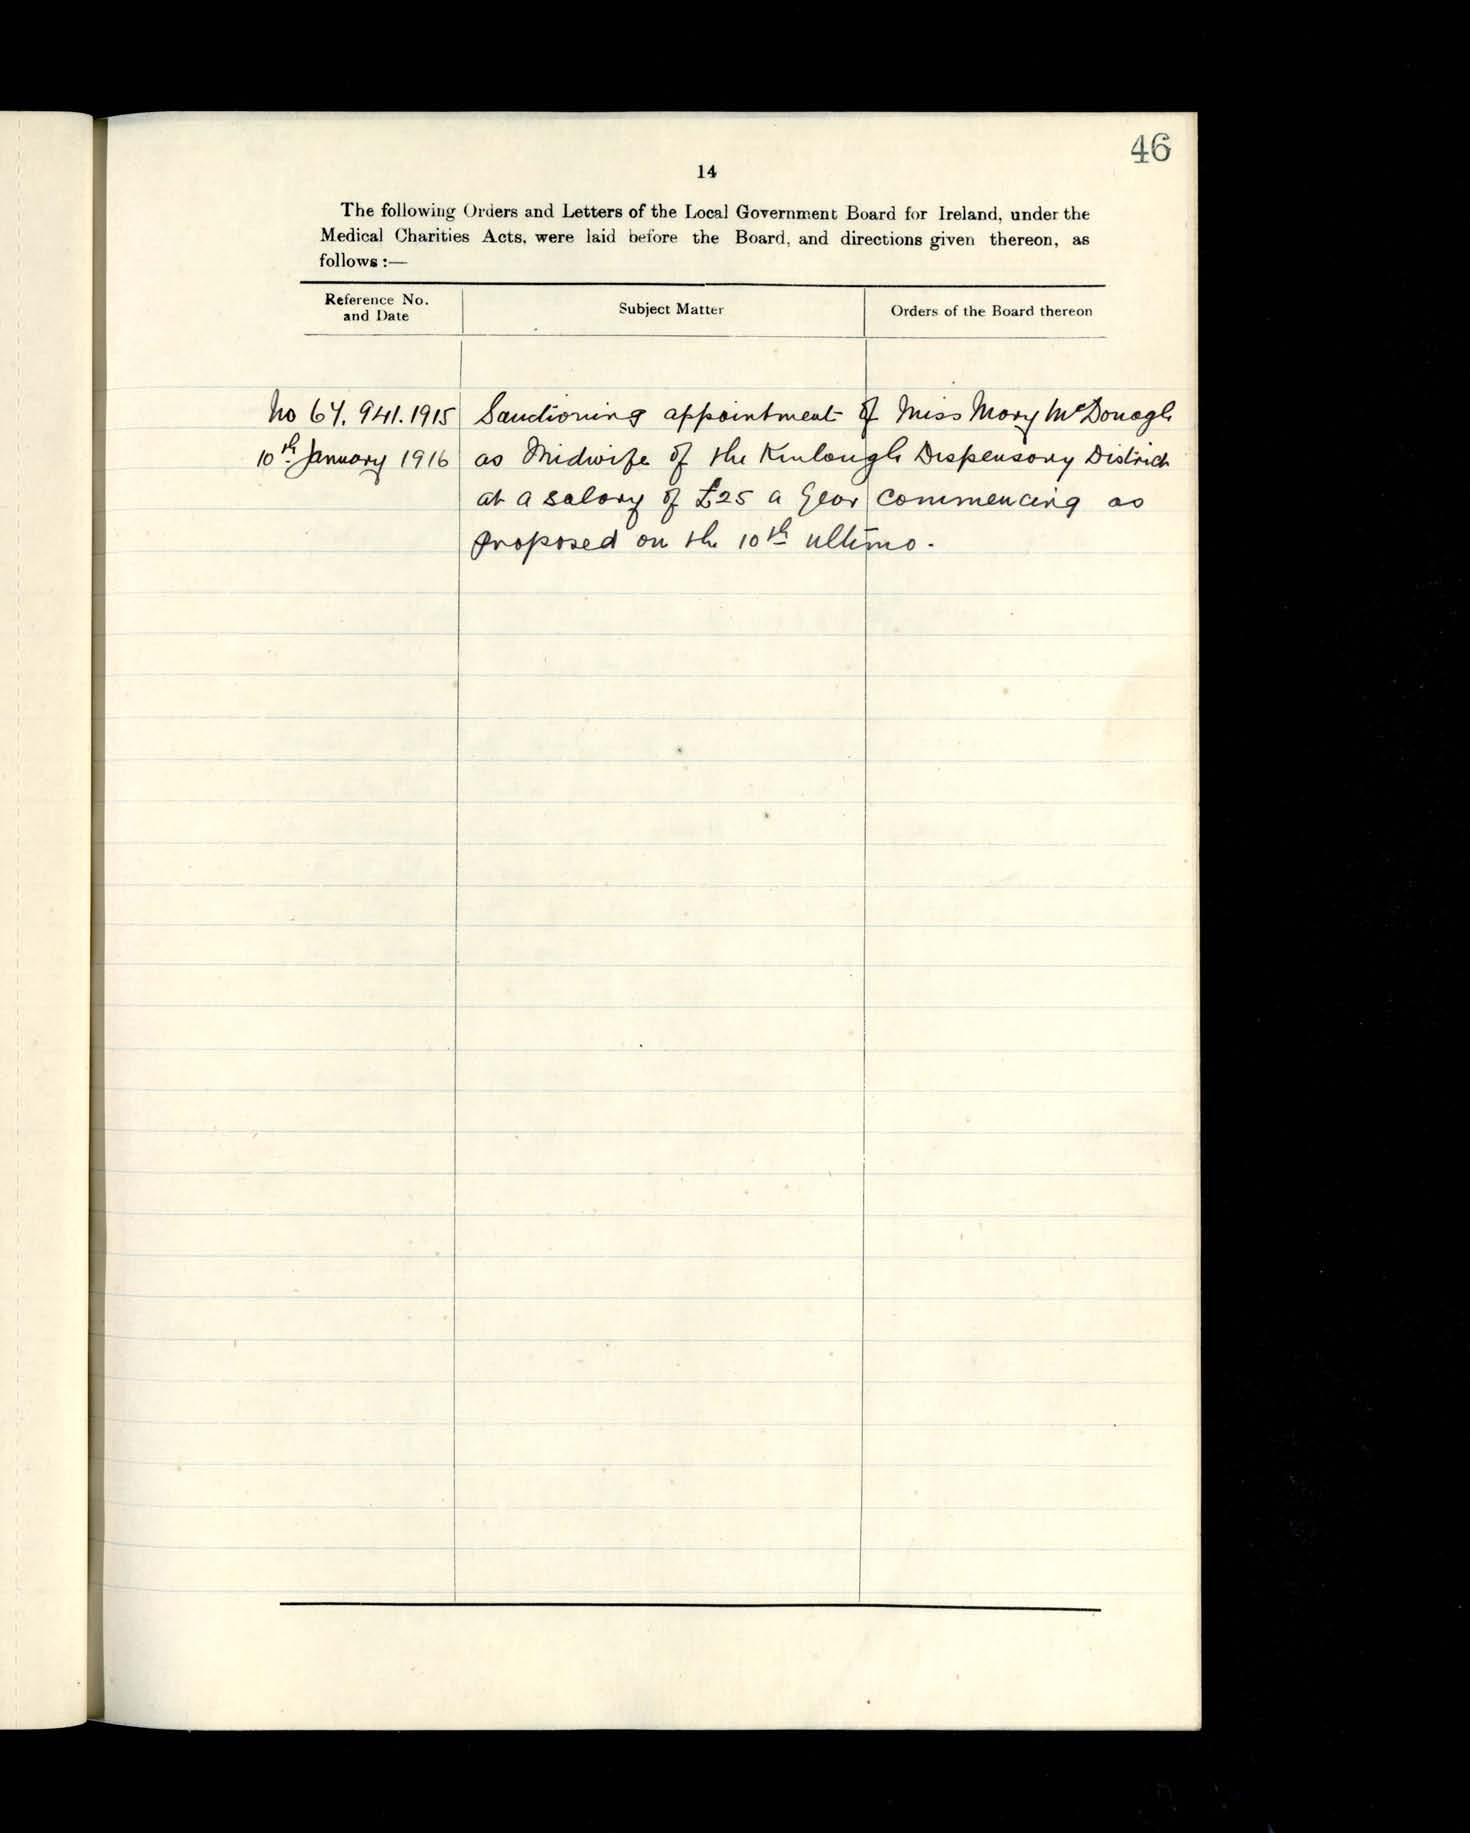 46
14
The following Orders and Letters of the Local Government Board for Ireland, under the
Medical Charities Acts, were laid before the Board, and directions given thereon, as
follows :—
Reference No.
and Date
Subject Matter
Orders of the Board thereon
No 67.941.1915 Sanctioning appointment of Miss Mary McDonagh
10th January 1916 as Midwife of the Kinlough Dispensary District
at a salary of £25 a year commencing as
proposed on the 10th ultimo.